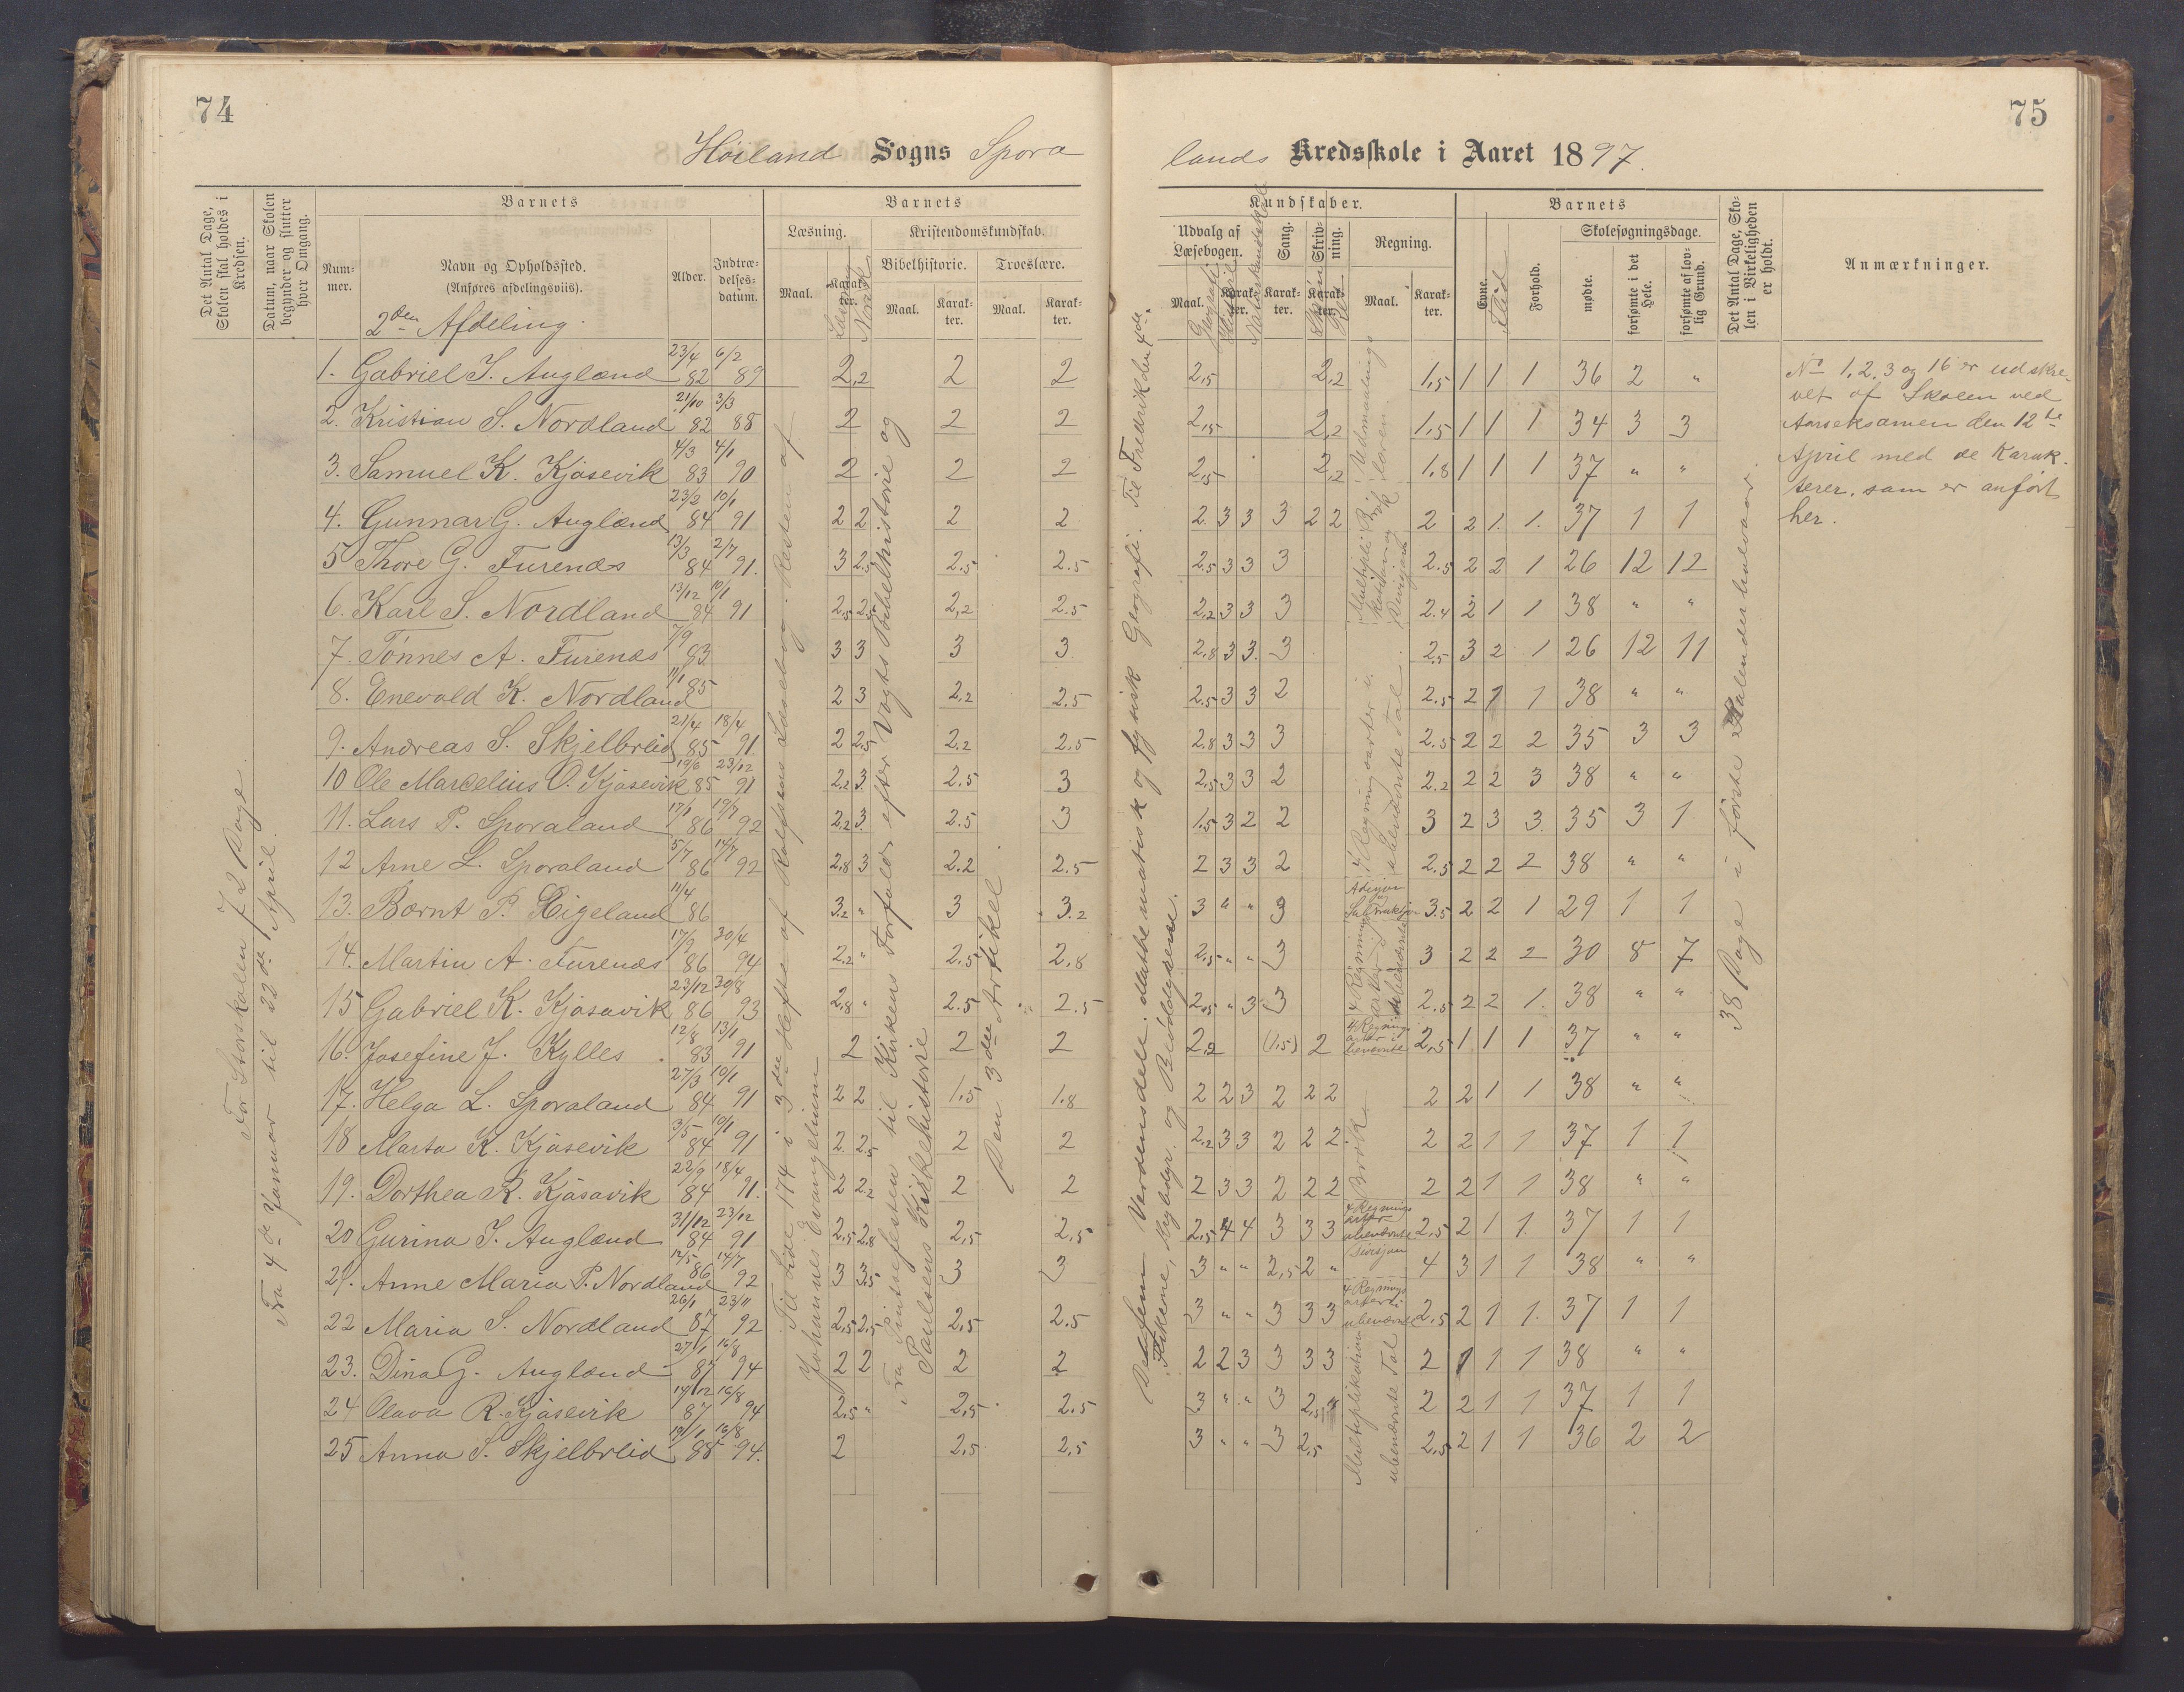 74
Høiland Sogns Spora
Det Antal Dage, Skolen skal holdes i Kredsen.
Datum, naar Skolen begynder og slutter hver Omgang.
Barnets
Num-mer.
Navn og Opholdssted.
(Anføres afdelingsviis).
2den Afdeling.
Alder.
Indtræ-delses-datum.
Barnets
Læsning.
Maal.
Karak-ter.
Læsning
Norsk
Kristendomskundskab.
Bibelhistorie.
Maal.
Karak-ter.
Troeslære.
Maal.
Karak-ter.
For Storskolen 72 Dage.
Fra 4de Januar til 22de April.
1. Gabriel T. Auglænd 23/4 82 6/2 89 2,2 2 2
2. Kristian S. Nordland 21/10 82 3/3 88 2 2 2
3. Samuel K. Kjåsevik 4/3 83 4/1 90 2 2 2
4. Gunnar G. Auglænd 23/2 84 10/1 91 2 2 2 2
5 Thore G. Furenes 13/3 84 2/7 91. 3 2.5 2.5 2.5
6. Karl S. Nordland 13/12 84 10/1 91 2.5 2.5 2,2 2.5
7. Tønnes A. Furenes 7/9 83 3 3 3 3
8. Enevald K. Nordland 11/1 85 2 3 2,2 2.5
9. Andreas S. Skjelbreid 21/4 85 18/4 91 2 2,5 2.2 2.5
10 Ole Marcelius O. Kjåsevik 19/6 85 23/12 91 2.2 3. 2.5 3
11. Lars P. Sporaland 17/1 86 19/7 92 2.2 3. 2.5 3
12 Arne L. Sporaland 5/7 86 14/7 92 2.8 3 2.2 2.5
13. Bærnt P. Eigeland 11/4 86 3.2 " 3 3.2
14. Martin A. Furenes 17/9 86 30/4 94 2.2 " 2.5 2,8
15 Gabriel K. Kjåsavik 23/12 86 30/8 93 2.8 " 2.5 2.5
16. Josefine J. Kylles 12/8 83 13/1 91 2 2 2
17. Helga L. Sporaland 27/3 84 10/1 91 2 2 1.5 1.8
18 Marta K. Kjåsevik 3/5 84 10/1 91 2. 2.5 2 2
19. Dorthea R. Kjåsavik 22/9 84 18/4 91. 2 2.2 2 2
20 Gurina T. Auglænd 31/12 84 23/12 91 2,5 2,8 2,5 2,5
21. Anne Maria P. Nordland 12/5 86 14/7 92 3 3.5 3 3
22 Maria S. Nordland 26/1 87 23/11 92 2,5 2,5 2,5 2.5
23. Dina G. Auglænd 27/1 87 16/8 94 2 2 2 2
24 Olava R. Kjåsevik 14/12 87 16/8 94 2,5 " 2,5 2.5
25 Anna S. Skjelbreid 19/1 88 16/8 94. 2 2,5 2,5
Til Side 174 i 3die Hefte af Rolfsens Læsebog. Resten af
Johannes Evangelium
Fra Pintsefesten til Kirkens Forfald efter Vogts Bibelhistorie og
Paulsens Kirkehistorie
Den 3die Artikel
75
lands Kredsskole i Aaret 1897.
Kundskaber.
Udvalg af Læsebogen.
Maal.
Geografi
Historie
Karak-ter.
Naturkundskab
Sang.
Karak-ter.
Skriv-ning.
Karak-ter.
Regning.
Maal.
Karak-ter.
Barnets
Evne.
Flid
Forhold.
Skolesøgningsdage.
mødte.
forsømte i det Hele.
forsømte af lov-lig Grund.
Det Antal Dage, Sko-len i Virkeligheden er holdt.
Anmærkninger.
De fem Verdensdele. Mathematisk og fysisk Geografi. Til Fredrik den 4de.
Fiskene, Krybdyr og Bløddyrene.
2,5 2,2 1,5 1 1 1 36 2 "
2,5 2,2 1,5 1 1 1 34 3 3
2,5 2,2 1,8 1 1 1 37 " "
2. 3 3 3 2 2 2 2 1. 1. 37 1 1
2.5 3 3 3 2.5 2 2 1 26 12 12
2.2 3 3 3 2.4 2 1 1 38 " "
2.8 3 3. 3 2.5 3 2 1 26 12 11
2.5 3 3 2 2.5 2 1 1 38 " "
2.8 3 3 3 2.5 2 2 2 35 3 3
2.5 3 3 2 2.2 2 2 3 38 " "
1.5 3 2 2 3 2 3 3. 35 3 1
2 3 3 2 2.5 2 2 2 38 " "
3 " " 3 3.5 2 2 1 29 1 1
2.5 " " 3 3 2 2 2 30 8 7
2,5 " 3 3 2.5 2 2 1. 38 " "
2,2 (1,5) 2 2,5 1 1 1 37 " "
2 2 3 2 2 2 2 2 1 1 38 " "
2,2 3 3 2 2 2. 2 2 1 1 37 1 1
2 3 3 2 2 2 2 2 1 1 38 " "
2,5 4 4 3 3 3 2,5 2 1 1. 37 1 1
3 " " 2,5 2 " 4 3 1 1 38 " "
3 " " 3 3 3 2,5 2 1 1. 37 1 1
2 2 3 3 3 3 2 1 1 1 38 " "
3 " " 3 2,5 2 2 1 1 37 1 1
3 " " 3 2,5 2,5 2 1 1 36 2 2
4 Regningsarter i ubenævnte Tal.
Brøk
Multiplikation
ubenævnte Tal
38 Dage i første Kalenderhalvaar.
No 1, 2, 3 og 16 er udskre-
vet af Skolen ved
Aarseksamen den 12te
April med de Karak-
terer, som er anført
her.